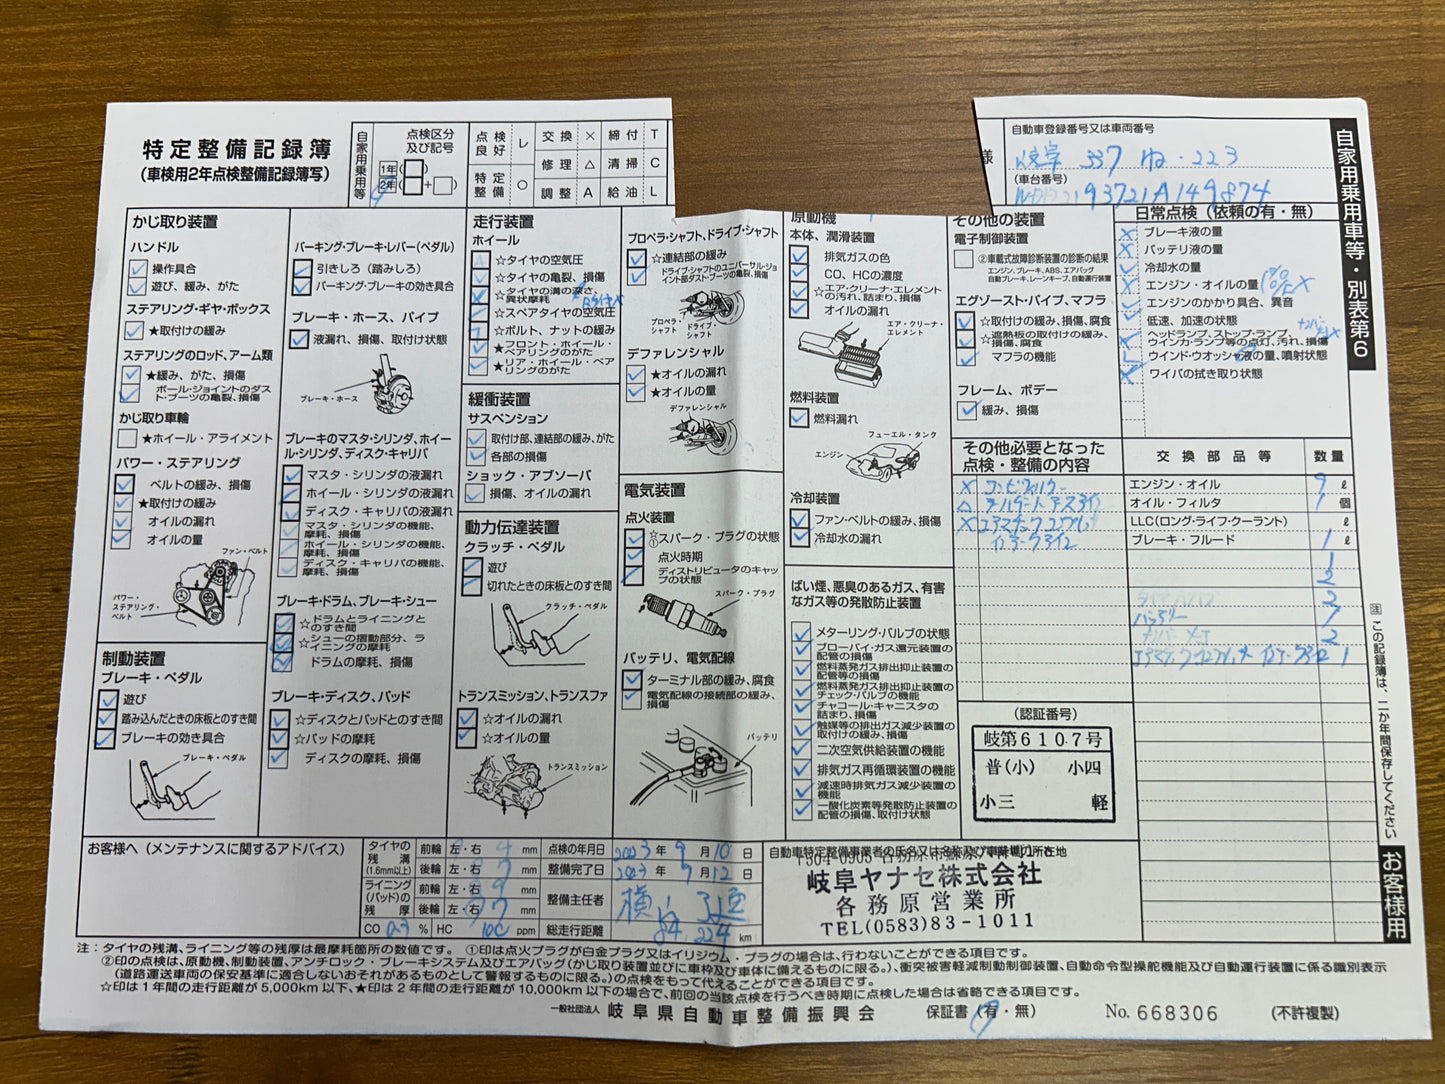 特定整備記録簿
(車検用2年点検整備記録簿写)
自家用乗用等
点検区分及び記号
1年
2年
点検良好 レ
特定整備 ○
交換 ×
修理 △
調整 A
締付 T
清掃 C
給油 L
様
自動車登録番号又は車両番号
岐阜 337 ね・223
(車台番号)
自家用乗用車等・別表第6
かじ取り装置
ハンドル
操作具合
遊び、緩み、がた
ステアリング・ギヤ・ボックス
★取付けの緩み
ステアリングのロッド、アーム類
★緩み、がた、損傷
ボール・ジョイントのダスト・ブーツの亀裂、損傷
かじ取り車輪
★ホイール・アライメント
パワー・ステアリング
ベルトの緩み、損傷
★取付けの緩み
オイルの漏れ
オイルの量
ファン・ベルト
パワー・ステアリング・ベルト
制動装置
ブレーキ・ペダル
遊び
踏み込んだときの床板とのすき間
ブレーキの効き具合
ブレーキ・ペダル
パーキング・ブレーキ・レバー(ペダル)
引きしろ(踏みしろ)
パーキング・ブレーキの効き具合
ブレーキ・ホース、パイプ
液漏れ、損傷、取付け状態
ブレーキ・ホース
ブレーキのマスタ・シリンダ、ホイール・シリンダ、ディスク・キャリパ
マスタ・シリンダの液漏れ
ホイール・シリンダの液漏れ
ディスク・キャリパの液漏れ
マスタ・シリンダの機能、摩耗、損傷
ホイール・シリンダの機能、摩耗、損傷
ディスク・キャリパの機能、摩耗、損傷
ブレーキ・ドラム、ブレーキ・シュー
☆ドラムとライニングとのすき間
☆シューの摺動部分、ライニングの摩耗
ドラムの摩耗、損傷
ブレーキ・ディスク、パッド
☆ディスクとパッドとのすき間
☆パッドの摩耗
ディスクの摩耗、損傷
走行装置
ホイール
☆タイヤの空気圧
☆タイヤの亀裂、損傷
☆タイヤの溝の深さ、異状摩耗
☆スペアタイヤの空気圧
☆ボルト、ナットの緩み
★フロント・ホイール・ベアリングのがた
★リア・ホイール・ベアリングのがた
緩衝装置
サスペンション
取付け部、連結部の緩み、がた
各部の損傷
ショック・アブソーバ
損傷、オイルの漏れ
動力伝達装置
クラッチ・ペダル
遊び
切れたときの床板とのすき間
クラッチ・ペダル
トランスミッション、トランスファ
☆オイルの漏れ
☆オイルの量
トランスミッション
プロペラ・シャフト、ドライブ・シャフト
☆連結部の緩み
ドライブ・シャフトのユニバーサル・ジョイント部ダスト・ブーツの亀裂、損傷
プロペラ・シャフト
ドライブ・シャフト
デファレンシャル
★オイルの漏れ
★オイルの量
デファレンシャル
電気装置
点火装置
☆①スパーク・プラグの状態
点火時期
ディストリビュータのキャップの状態
スパーク・プラグ
バッテリ、電気配線
ターミナル部の緩み、腐食
電気配線の接続部の緩み、損傷
バッテリ
原動機
本体、潤滑装置
排気ガスの色
CO、HCの濃度
☆エア・クリーナ・エレメントの汚れ、詰まり、損傷
オイルの漏れ
エア・クリーナ・エレメント
燃料装置
燃料漏れ
フューエル・タンク
エンジン
冷却装置
ファン・ベルトの緩み、損傷
冷却水の漏れ
ばい煙、悪臭のあるガス、有害なガス等の発散防止装置
メターリング・バルブの状態
ブローバイ・ガス還元装置の配管の損傷
燃料蒸発ガス排出抑止装置の配管等の損傷
燃料蒸発ガス排出抑止装置のチェック・バルブの機能
チャコール・キャニスタの詰まり、損傷
触媒等の排出ガス減少装置の取付けの緩み、損傷
二次空気供給装置の機能
排気ガス再循環装置の機能
減速時排気ガス減少装置の機能
一酸化炭素等発散防止装置の配管の損傷、取付け状態
その他の装置
電子制御装置
②車載式故障診断装置の診断の結果
エンジン、ブレーキ、ABS、エアバッグ
自動ブレーキ、レーンキープ、自動運行装置
エグゾースト・パイプ、マフラ
☆取付けの緩み、損傷、腐食
☆遮熱板の取付けの緩み、損傷、腐食
マフラの機能
フレーム、ボデー
緩み、損傷
日常点検(依頼の有・無)
ブレーキ液の量
バッテリ液の量
冷却水の量
エンジン・オイルの量
エンジンのかかり具合、異音
低速、加速の状態
ヘッドランプ、ストップ・ランプ、ウインカ・ランプ等の点灯、汚れ、損傷
ウインド・ウオッシャ液の量、噴射状態
ワイパの拭き取り状態
その他必要となった点検・整備の内容
交換部品等 数量
エンジン・オイル 9 ℓ
オイル・フィルタ 1 個
LLC(ロング・ライフ・クーラント) ℓ
ブレーキ・フルード 1 ℓ
1
2
バッテリー
2
(認証番号)
岐第6107号
普(小) 小四
小三 軽
注 この記録簿は、二か年間保存してください
お客様用
お客様へ(メンテナンスに関するアドバイス)
タイヤの残溝(1.6mm以上) 前輪 左・右 4 mm
後輪 左・右 7 mm
ライニング(パッド)の残厚 前輪 左・右 9 mm
後輪 左・右 7 mm
CO 0.3 % HC 100 ppm
点検の年月日 2023 年 9 月 10 日
整備完了日 2023 年 9 月 12 日
整備主任者
総走行距離 84,224 km
自動車特定整備事業者の氏名又は名称及び事業場の所在地
岐阜ヤナセ株式会社
各務原営業所
TEL(0583)83-1011
注：タイヤの残溝、ライニング等の残厚は最摩耗箇所の数値です。 ①印は点火プラグが白金プラグ又はイリジウム・プラグの場合は、行わないことができる項目です。
②印の点検は、原動機、制動装置、アンチロック・ブレーキシステム及びエアバッグ(かじ取り装置並びに車枠及び車体に備えるものに限る。)、衝突被害軽減制動制御装置、自動命令型操舵機能及び自動運行装置に係る識別表示
(道路運送車両の保安基準に適合しないおそれがあるものとして警報するものに限る。)の点検をもって代えることができる項目です。
☆印は1年間の走行距離が5,000km以下、★印は2年間の走行距離が10,000km以下の場合で、前回の当該点検を行うべき時期に点検した場合は省略できる項目です。
一般社団法人 岐阜県自動車整備振興会
保証書(有・無)
No. 668306
(不許複製)